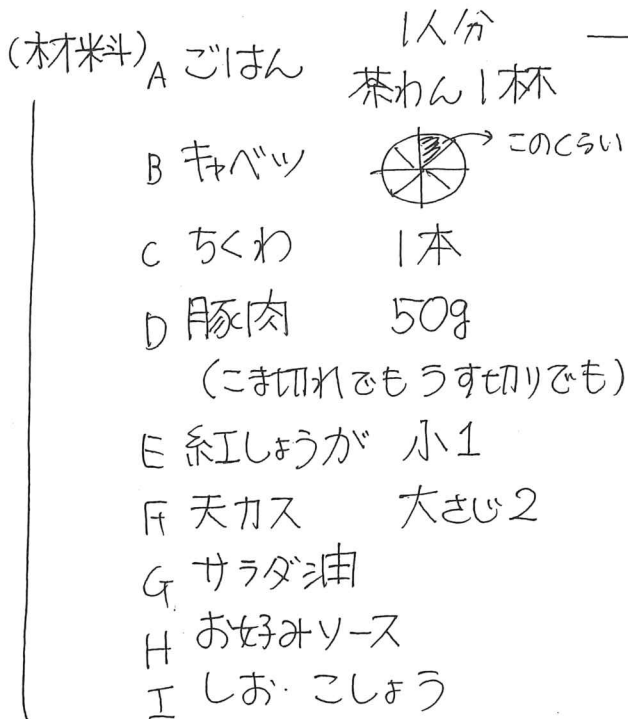 1人分
(材料) A ごはん 茶わん1杯
B キャベツ このくらい
C ちくわ 1本
D 豚肉 50g
(こま切れでもうす切りでも)
E 紅しょうが 小1
F 天カス 大さじ2
G サラダ油
H お好みソース
I しお・こしょう